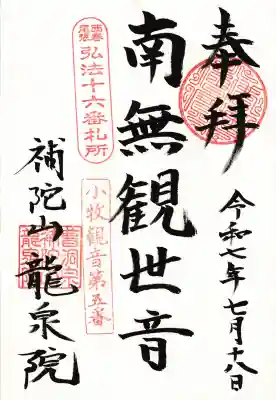 奉拝
令和七年七月十八日
南無観世音
弘法十六番札所
小牧観音第五番
補陀山龍泉院